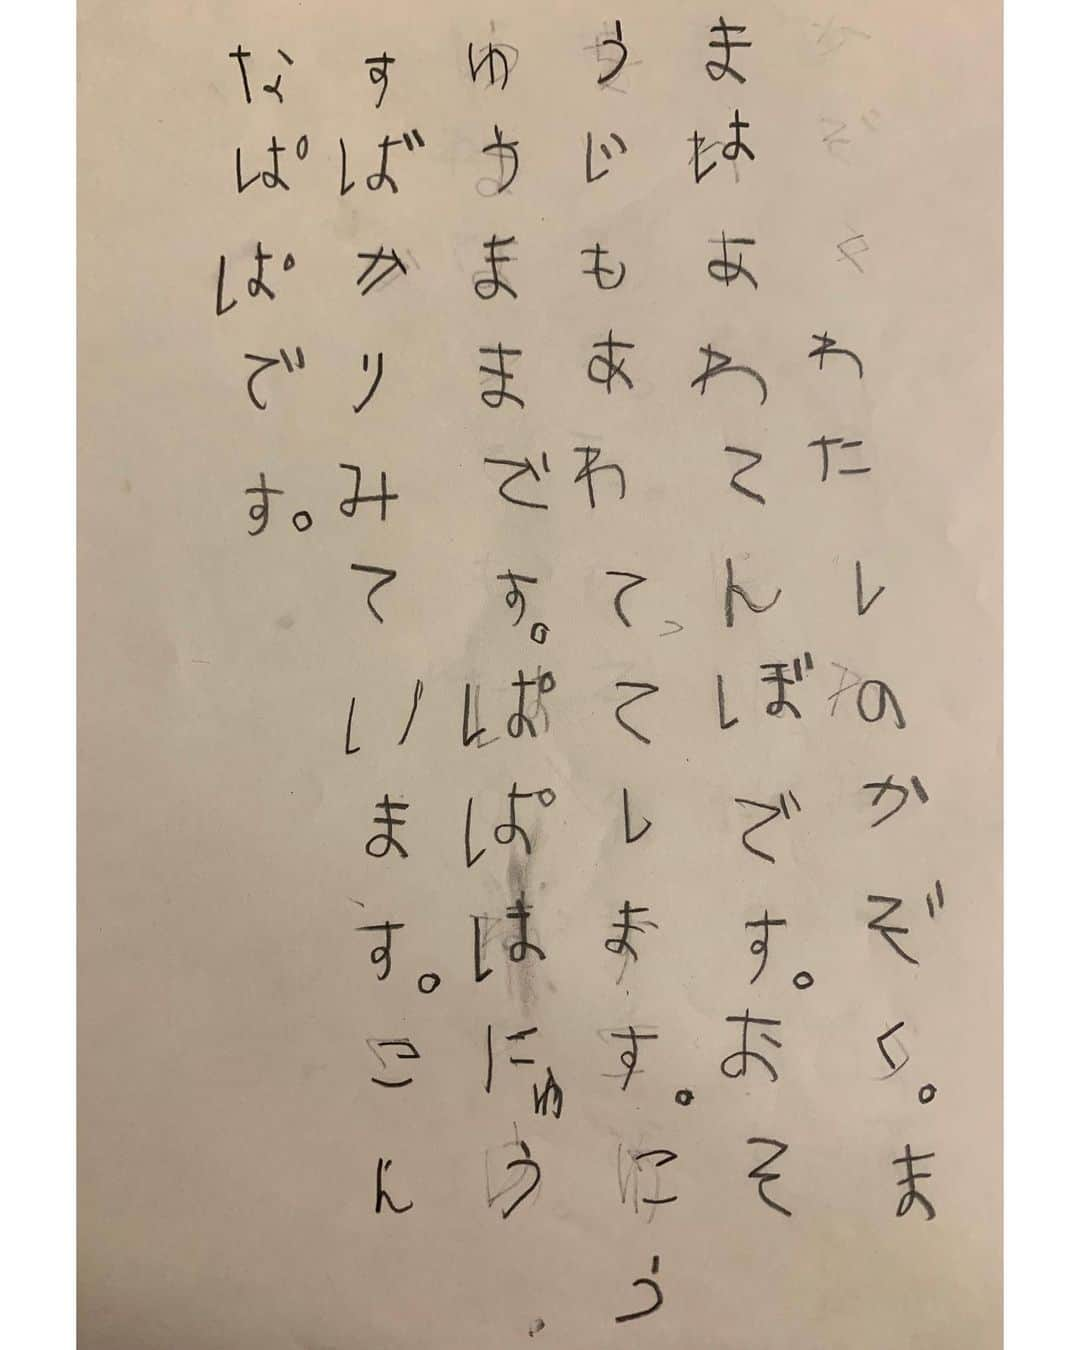 わたしのかぞく。ま
まはあわてんぼです。おそ
うじもあわててします。こう
ゆうままです。ぱぱはにゅう
すばかりみています。こん
なぱぱです。